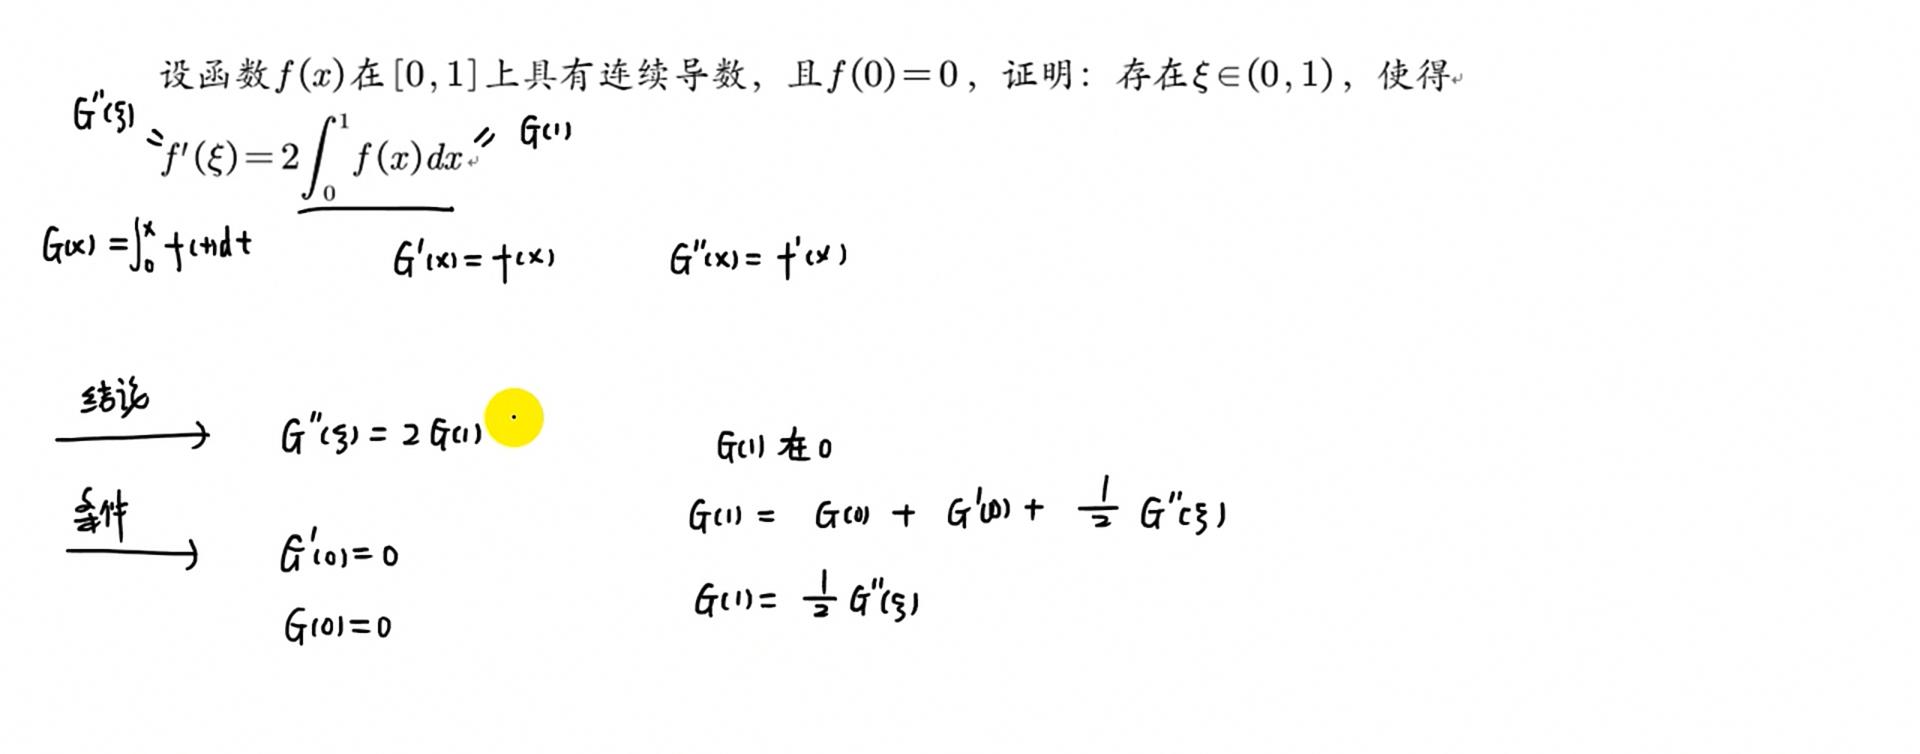 设函数f(x)在[0,1]上具有连续导数，且f(0)=0，证明：存在ξ∈(0,1)，使得
G''(ξ) = f'(ξ)=2∫₀¹f(x)dx = G(1)
G(x)=∫₀ˣ f(t)dt G'(x)=f(x) G''(x)=f'(x)
结论 G''(ξ)=2G(1)
G(1)在0
条件 G'(0)=0
G(0)=0
G(1)= G(0) + G'(0) + 1/2 G''(ξ)
G(1)= 1/2 G''(ξ)